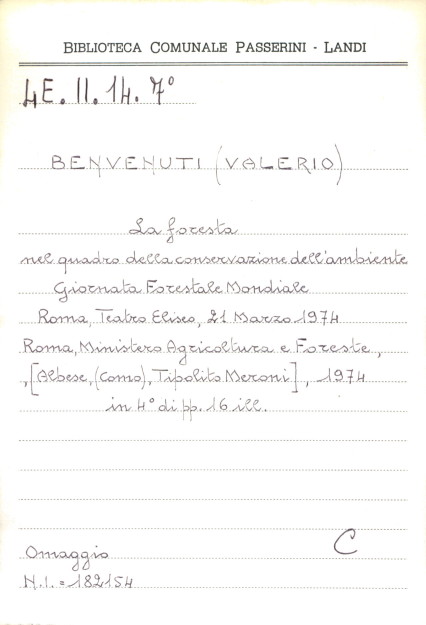 BIBLIOTECA COMUNALE PASSERINI - LANDI
4E. II. 14. 7°
BENVENUTI (VALERIO)
La foresta
nel quadro della conservazione dell'ambiente
Giornata Forestale Mondiale
Roma, Teatro Eliseo, 21 Marzo 1974
Roma, Ministero Agricoltura e Foreste,
,[Albese, (Como), Tipolito Meroni], 1974
in 4° di pp. 16 ill.
C
Omaggio
N.I. = 182154